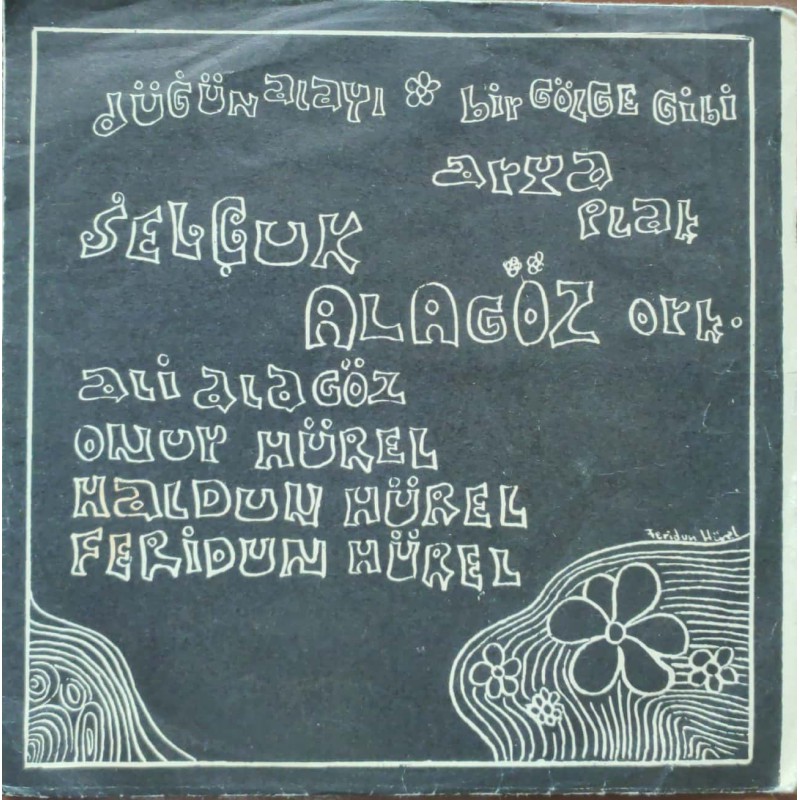 düğün alayı bir GÖLGE Gibi
arya
plak
SELÇUK
ALAGÖZ ork.
ali alagöz
ONUR HÜREL
HaLDUN HÜREL
FERiDUN HÜREL
Feridun Hürel